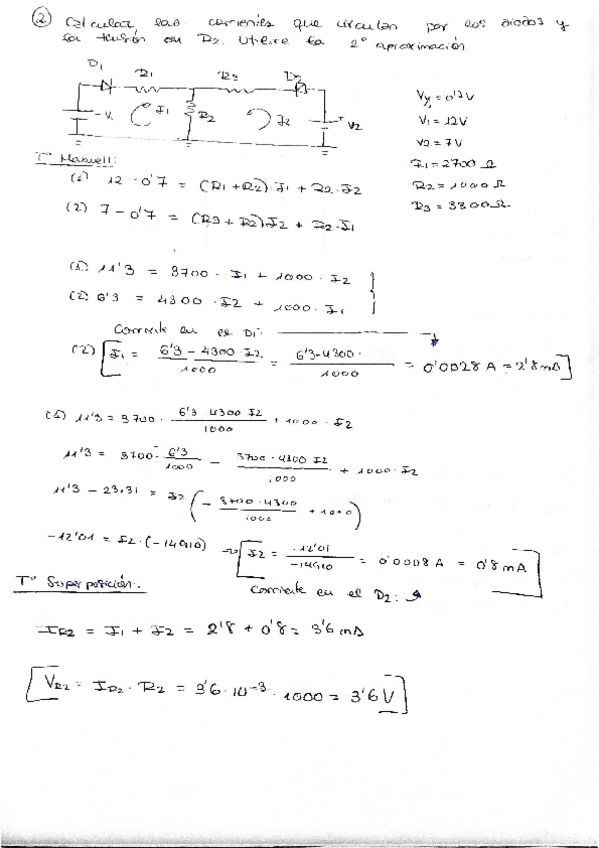 ② Calcular las corrientes que circulan por los diodos y
la tensión en R2. Utilice la 2º aproximación.
D1 R1 R3 D2
V1 I1 R2 I2 V2
Vγ = 0'7V
V1 = 12V
V2 = 7V
R1 = 2700 Ω
R2 = 1000 Ω
R3 = 3300 Ω.
Tº Maxwell:
(1) 12 - 0'7 = (R1+R2)·I1 + R2·I2
(2) 7 - 0'7 = (R3+R2)I2 + R2·I1
(1) 11'3 = 3700 · I1 + 1000 · I2
(2) 6'3 = 4300 · I2 + 1000 · I1
Corriente en el D1:
(2) I1 = 6'3 - 4300·I2 / 1000 = 6'3-4300· / 1000 = 0'0028 A = 2'8 mA
(1) 11'3 = 3700 · 6'3 · 4300 I2 / 1000 + 1000 · I2
11'3 = 3700 · 6'3 / 1000 - 3700 · 4300 I2 / 1000 + 1000 · I2
11'3 - 23,31 = I2 (- 3700 · 4300 / 1000 + 1000)
-12'01 = I2·(-14910) → I2 = -12'01 / -14910 = 0'0008 A = 0'8 mA
Tº Superposición:
Corriente en el D2:
IR2 = I1 + I2 = 2'8 + 0'8 = 3'6 mA
VR2 = IR2 · R2 = 3'6·10⁻³ · 1000 = 3'6 V